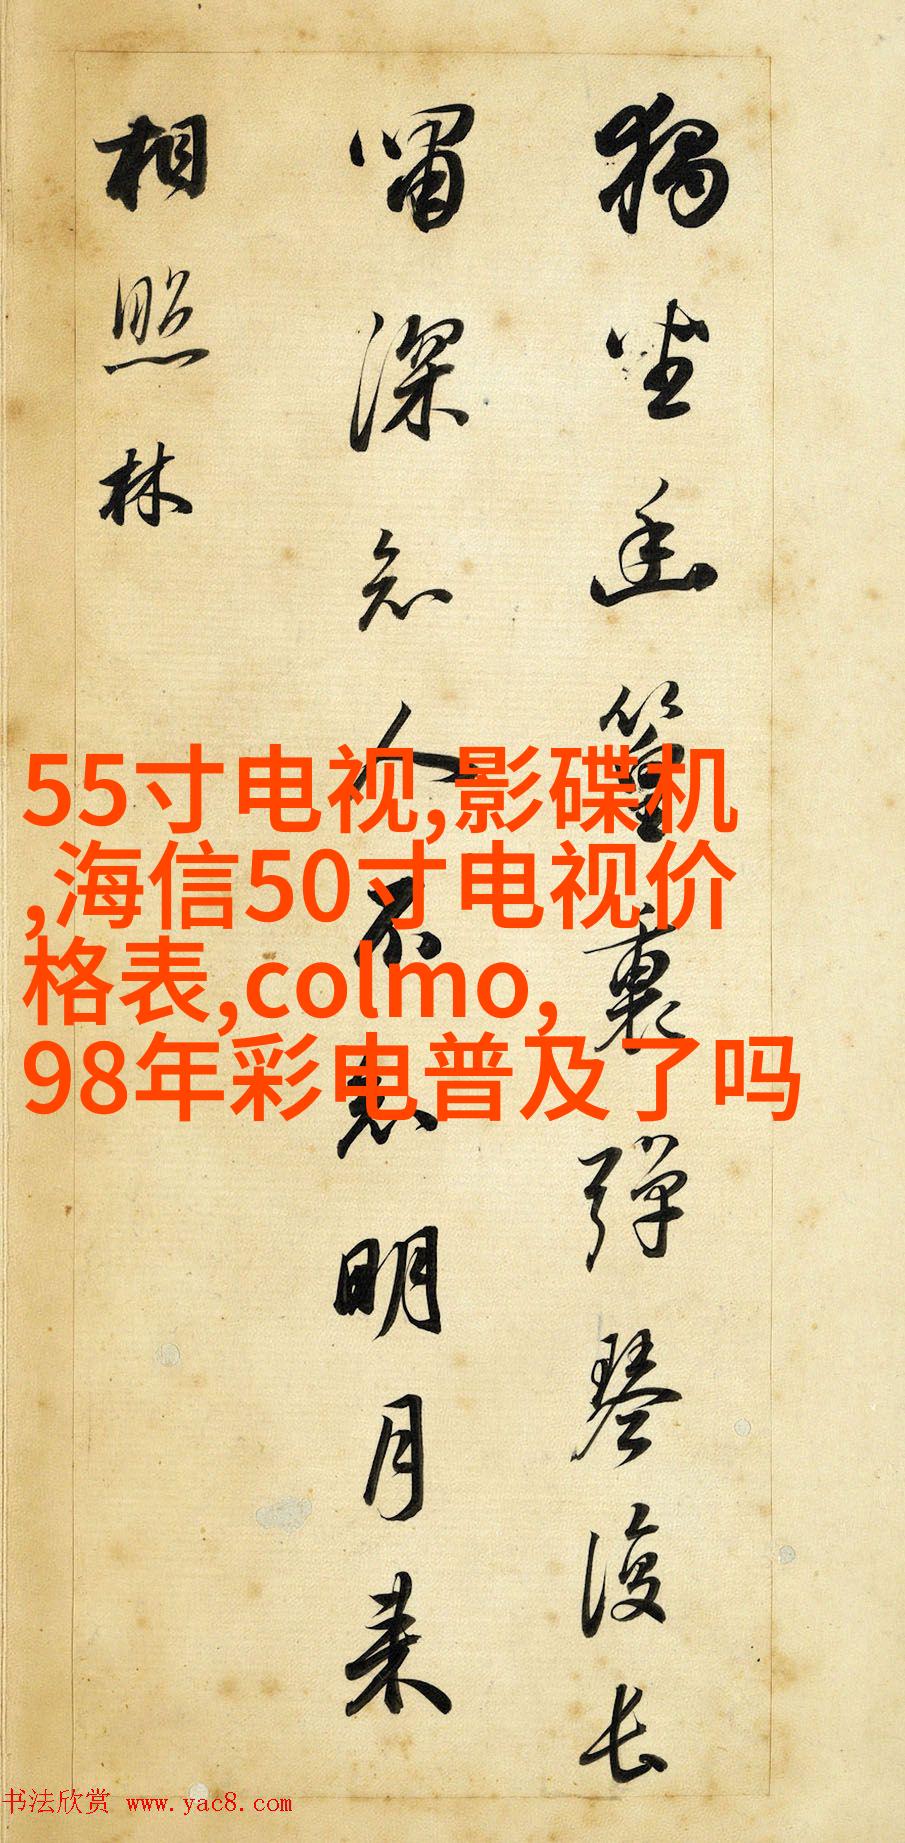 獨坐幽篁裏彈琴復長
嘯深知人不知明月来
相照林
55寸电视,影碟机
,海信50寸电视价
格表,colmo,
98年彩电普及了吗
书法欣赏 www.yac8.com